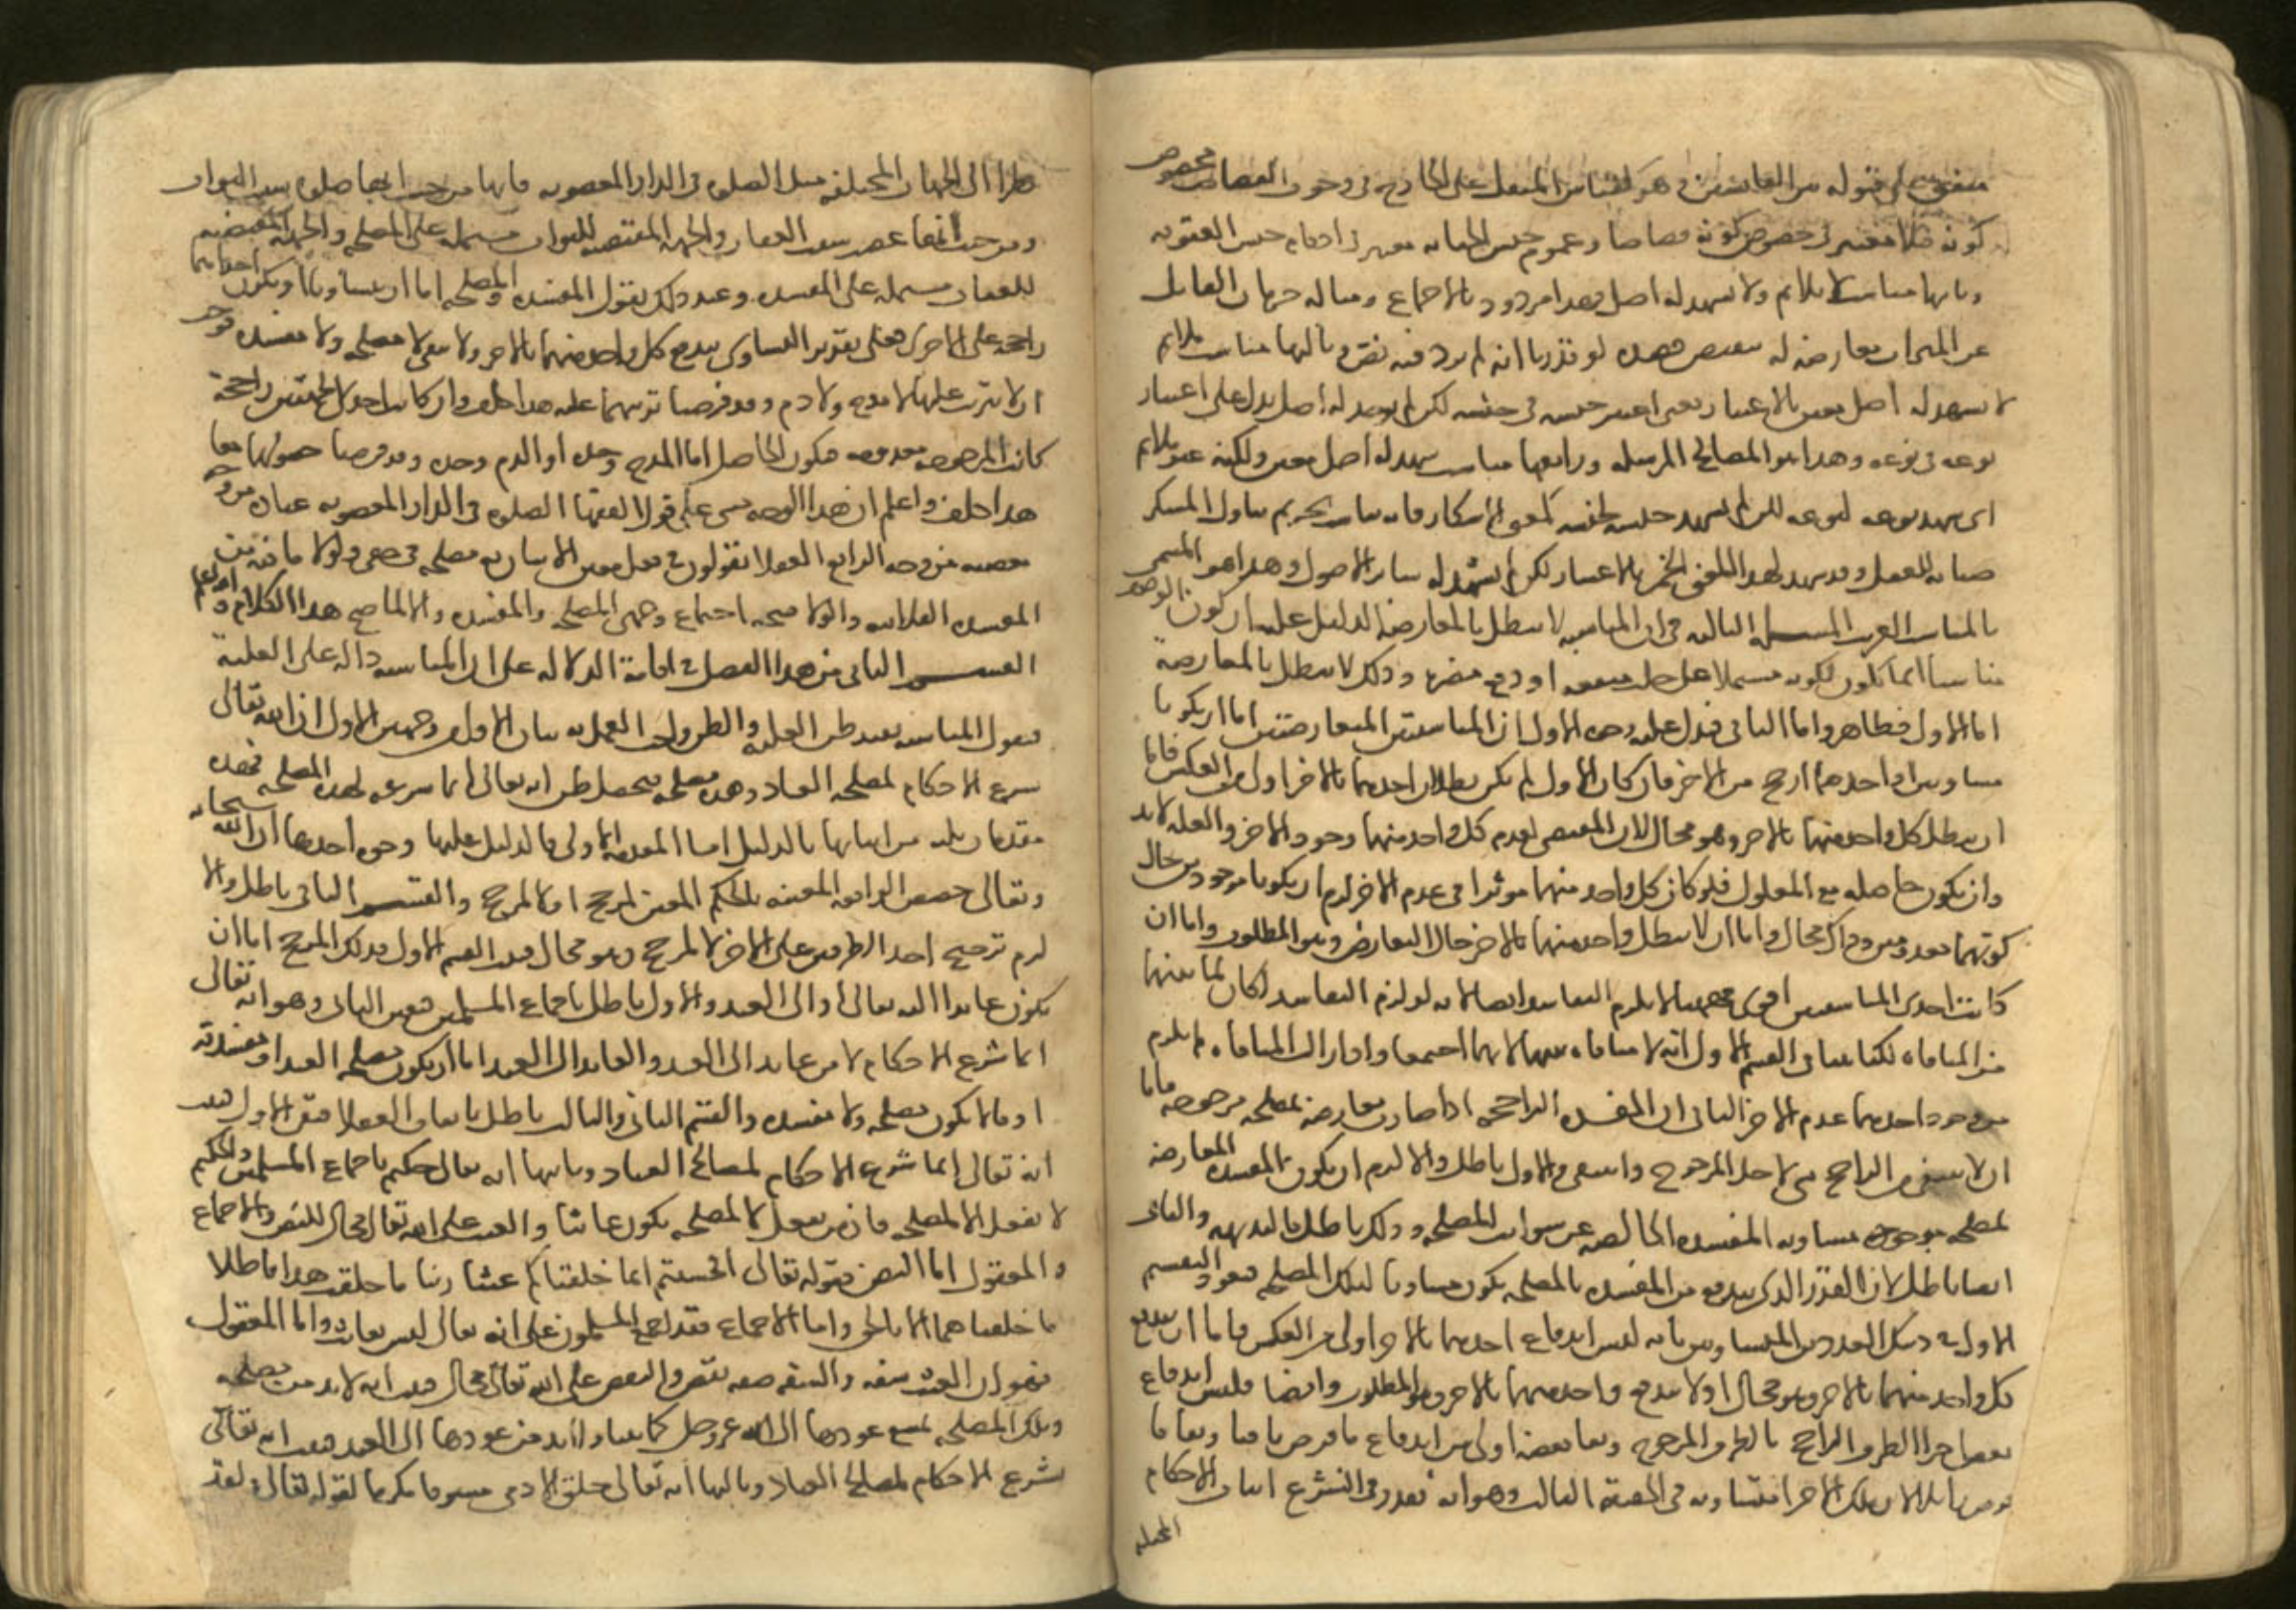 متفق على قبوله بين القايسين وهو كقياس المثقل على الجارح في وجوب القصاص فخصوص
كونه قتلا معتبر في خصوص كونه قصاصا وعموم جنس الجناية معتبر في احكام جنس العقوبه
وثانيها مناسب لا يلايم ولا يشهد له اصل فهذا مردود بالاجماع ومثاله حرمان القاتل
عن الميراث معارضة له بنقيض قصده لو قدرنا انه لم يرد فيه نص وثالثها مناسب ملايم
لا يشهد له اصل معين بالاعتبار يعني اعتبر جنسه في جنسه لكن لم يوجد له اصل يدل على اعتبار
نوعه في نوعه وهذا هو المصالح المرسله ورابعها مناسب يشهد له اصل معين ولكنه غير ملايم
اي يشهد نوعه لنوعه لكن لم يشهد جنسه لجنسه كمعنى الاسكار فانه يناسب تحريم تناول المسكر
صيانه للعقل وقد يشهد لهذا المعنى الخمر بالاعتبار لكن لم يشهد له ساير الاصول وهذا هو المسمى
بالمناسب الغريب المسله الثالثه في ان المناسبه لا تبطل بالمعارضه الدليل عليه ان كون الوصف
مناسبا انما يكون لكونه مشتملا على جلب منفعه او دفع مضره وذلك لا يبطل بالمعارضة
اما الاول فظاهر واما الثاني فيدل عليه وجوه الاول ان المناسبتين المتعارضتين اما ان يكونا
متساويين او احدهما ارجح من الاخر فان كان الاول لم يكن بطلان احدهما بالاخر اولى من العكس فاما
ان يبطل كل واحد منهما بالاخر وهو محال لان المقتضي لعدم كل واحد منهما وجود الاخر والعله لا بد
وان تكون حاصله مع المعلول فلو كان كل واحد منهما موثرا في عدم الاخر لزم ان يكونا موجودين حال
كونهما معدومين وذاك محال واما ان لا يبطل واحد منهما بالاخر حال التعارض وهو المطلوب واما ان
كانت احدى المناسبتين اقوى فههنا لا يلزم التفاسد ايضا لانه لو لزم التفاسد لكان لما بينهما
من المنافاه لكنا بينا في القسم الاول انه لا منافاه بينهما لانهما اجتمعا واذا زالت المنافاه لم يلزم
من وجود احدهما عدم الاخر الثاني ان المفسده الراجحه اذا صارت معارضه بمصلحه مرجوحه فاما
ان لا ينتفي من الراجح شي لاجل المرجوح واما ان ينتفي والاول باطل والا لزم ان تكون المفسده المعارضة
لمصلحه مرجوحه مساويه المفسده الخالصه عن شوايب المصلحه وذلك باطل بالبديهه والثاني
ايضا باطل لان القدر الذي يندفع من المفسده بالمصلحه يكون مساويا لتلك المصلحه فيعود التقسيم
الاول في ذينك القدرين المتساويين بانه ليس اندفاع احدهما بالاخر اولى من العكس فاما ان يندفع
كل واحد منهما بالاخر وهو محال او لا يندفع واحد منهما بالاخر وهو المطلوب وايضا فليس اندفاع
بعض اجزا الطرف الراجح بالطرف المرجوح وبقا بعضه اولى من اندفاع ما فرض باقيا وبقا ما
فرض زايلا لان تلك الاجزا متساويه في الحقيقة الثالث وهو انه تقرر في الشرع اثبات الاحكام
المختلفه
نظرا الى الجهات المختلفه مثل الصلوه في الدار المغصوبه فانها من حيث انها صلوة سبب الثواب
ومن حيث انها غصب سبب العقاب والجهه المقتضيه للثواب مشتمله على المصلحه والجهه المقتضيه
للعقاب مشتمله على المفسده وعند ذلك نقول المفسده والمصلحه اما ان يتساويا او تكون احداهما
راجحة على الاخرى فعلى تقدير التساوي يندفع كل واحد منهما بالاخر ولا يبقى لا مصلحه ولا مفسده فوجب
ان لا يترتب عليهما لا مدح ولا ذم وقد فرضنا ترتبهما عليه هذا خلف وان كانت احدى الجهتين راجحة
كانت المرجوحه معدومه فيكون الحاصل اما المدح وحده او الذم وحده وقد فرضنا حصولهما معا
هذا خلف واعلم ان هذا الوجه مبني على قول الفقها الصلوه في الدار المغصوبه عباده من وجه
معصيه من وجه الرابع العقلا يقولون في فعل معين الاتيان به مصلحه في حقي لولا ما فيه من
المفسده الفلانيه ولولا صحه اجتماع وجهي المصلحه والمفسده والا لما صح هذا الكلام والله اعلم
القسم الثاني من هذا الفصل في اقامة الدلاله على ان المناسبه داله على العلية
فنقول المناسبه تفيد ظن العليه والظن واجب العمل به بيان الاول من وجهين الاول ان الله تعالى
شرع الاحكام لمصلحه العباد وهذه مصلحه فيحصل ظن انه تعالى انما شرعه لهذه المصلحه فهذه
مقدمات ثلث من اثباتها بالدليل اما المقدمه الاولى فالدليل عليها وجوه احدها ان الله سبحانه
وتعالى خصص الواقعه المعينه بالحكم المعين لمرجح او لا لمرجح والقسم الثاني باطل والا
لزم ترجيح احد الطرفين على الاخر لا لمرجح وهو محال فثبت القسم الاول فذلك المرجح اما ان
يكون عايدا الى الله تعالى او الى العبد والاول باطل باجماع المسلمين فتعين الثاني وهو انه تعالى
انما شرع الاحكام لامر عايد الى العبد والعايد الى العبد اما ان يكون مصلحه العبد او مفسدته
او ما لا يكون مصلحه ولا مفسده والقسم الثاني والثالث باطل باتفاق العقلا فبقي الاول فثبت
انه تعالى انما شرع الاحكام لمصالح العباد وثانيها انه تعالى حكيم باجماع المسلمين والحكيم
لا يفعل الا لمصلحه فان من يفعل لا لمصلحه يكون عابثا والعبث على الله تعالى محال للنص والاجماع
والمعقول اما النص فقوله تعالى افحسبتم انما خلقناكم عبثا ربنا ما خلقت هذا باطلا
ما خلقناهما الا بالحق واما الاجماع فقد اجمع المسلمون على انه تعالى ليس بعابث واما المعقول
فهو ان العبث سفه والسفه صفه نقص والنقص على الله تعالى محال فثبت انه لا بد من مصلحه
وتلك المصلحه يمتنع عودها الى الله عز وجل كما بينا ولا بد من عودها الى العبد فثبت انه تعالى
شرع الاحكام لمصالح العباد وثالثها انه تعالى خلق الادمي مشرفا مكرما لقوله تعالى ولقد